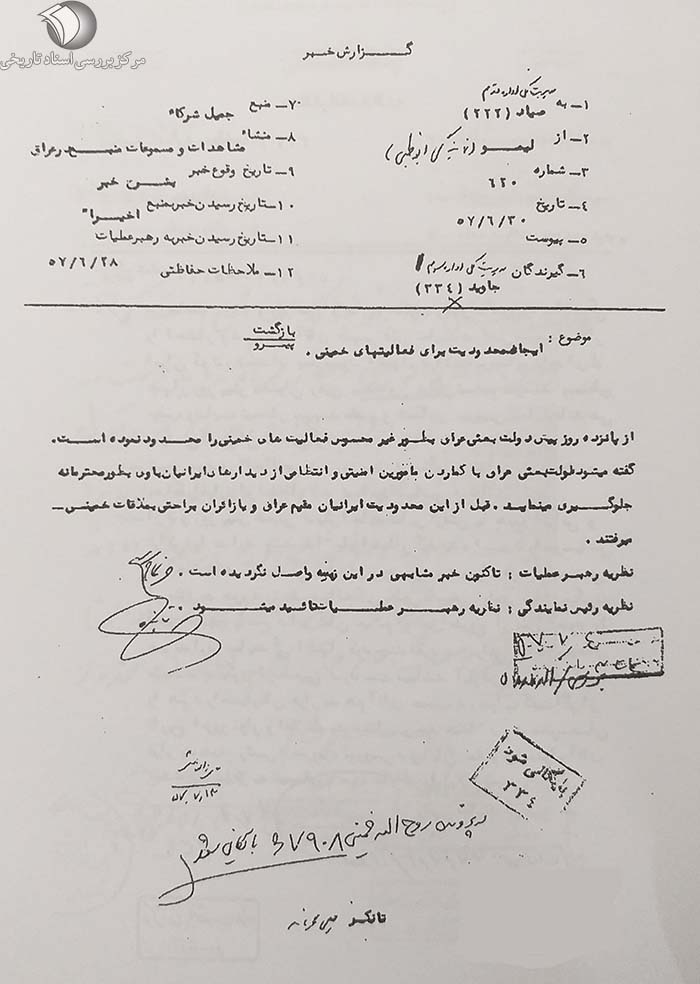 مرکز بررسی اسناد تاریخی
گزارش خبر
مدیریت کل اداره
۱- به صماد (۲۲۲)
۲- از لیمو
۳- شماره ۶۲۰
۴- تاریخ ۵۷/۶/۳۰
۵- پیوست
۶- گیرندگان مدیریت کل اداره سوم
جاوید (۳۳۴)
۷- منبع جمیل شرکاء
۸- منشاء مشاهدات و مسموعات منبع در عراق
۹- تاریخ وقوع خبر بشرح خبر
۱۰- تاریخ رسیدن خبر بمنبع اخیرا"
۱۱- تاریخ رسیدن خبر به رهبر عملیات ۵۷/۶/۲۸
۱۲- ملاحظات حفاظتی
بازگشت
پیرو
موضوع : ایجاد محدودیت برای فعالیتهای خمینی .
از پانزده روز پیش دولت بعثی عراق بطور غیر محسوس فعالیت های خمینی را محدود نموده است .
گفته میشود دولت بعثی عراق با گماردن مامورین امنیتی و انتظامی از دیدارهای ایرانیان با وی بطور محترمانه
جلوگیری مینماید . قبل از این محدودیت ایرانیان مقیم عراق و یا زائران براحتی بملاقات خمینی
میرفتند .
نظریه رهبر عملیات : تاکنون خبر مشابهی در این زمینه واصل نگردیده است .
نظریه رئیس نمایندگی : نظریه رهبر عملیات تائید میشود .
بایگانی شود
۳۳۴
۵۷.۷.۱۳
در پرونده روح اله خمینی ۵۷۹۰۸ بایگانی شود
تانکر